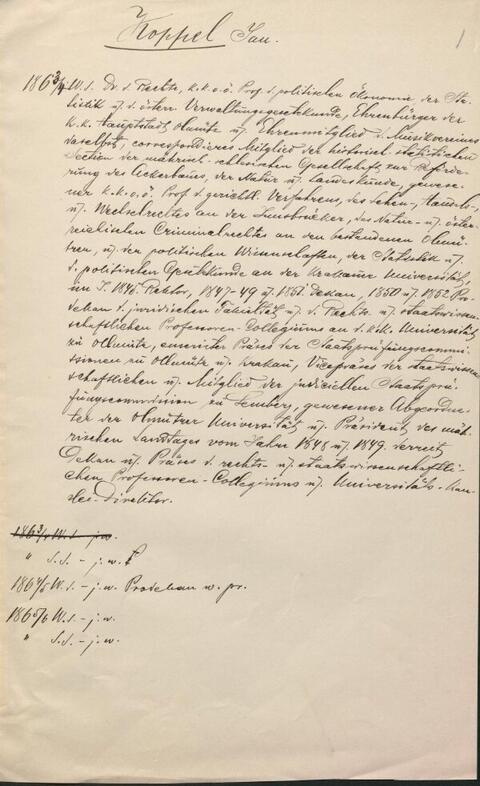 Koppel Jan.
1
1863/4 W. s. Dr. d. Rechte, k.k. o.ö. Prof. d. politischen Ökonomie, der Sta-
tistik u. d. österr. Verwaltungsgesetzkunde, Ehrenbürger der
k.k. Hauptstadt Olmütz u. Ehrenmitglied d. Musikvereines
daselbst, correspondires Mitglied der historisch statistischen
Section der mährisch-schlesischen Gesellschaft zur Beförde-
rung des Ackerbaues, der Natur u. Landeskunde, gewese-
ner k.k. o.ö. Prof. d. gerichtl. Verfahrens, des Lehen-, Handels-,
u. Wechselrechtes an der Innsbrucker, des Natur- u. öster-
reichischen Criminalrechtes an der bestandenen Olmü-
tzer, u. der politischen Wissenschaften, der Statistik u.
d. politischen Gesetzkunde an der Krakauer Universität,
im J. 1846 Rektor, 1847-49 u. 1851 Dekan, 1850 u. 1852 Pro-
dekan d. juridischen Fakultät u. d. Rechts- u. staatswissen-
schaftlichen Professoren-Collegiums an d. k.k. Universität
zu Olmütz, emerirter Präses der Staatsprüfungscommi-
ssionen zu Olmütz u. Krakau, Vicepräses der staatswissen-
schaftlichen u. Mitglied der judiciellen Staatsprü-
fungscommission zu Lemberg, gewesener Abgeordne-
ter der Olmützer Universität u. Präsident des mäh-
rischen Landtages vom Jahre 1848 u. 1849. derzeit
Dekan u. Präses d. rechts- u. staatswissenschaftli-
chen Professoren-Collegiums u. Universitäts-Kan-
zlei-Direktor.
1863/4 W. s. - j. w.
" S. s. - j. w.
1864/5 W. s. - j. w. Prodekan w. pr.
1865/6 W. s. - j. w.
" S. s. - j. w.